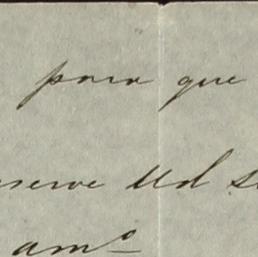 para que
serve Ud s
amº